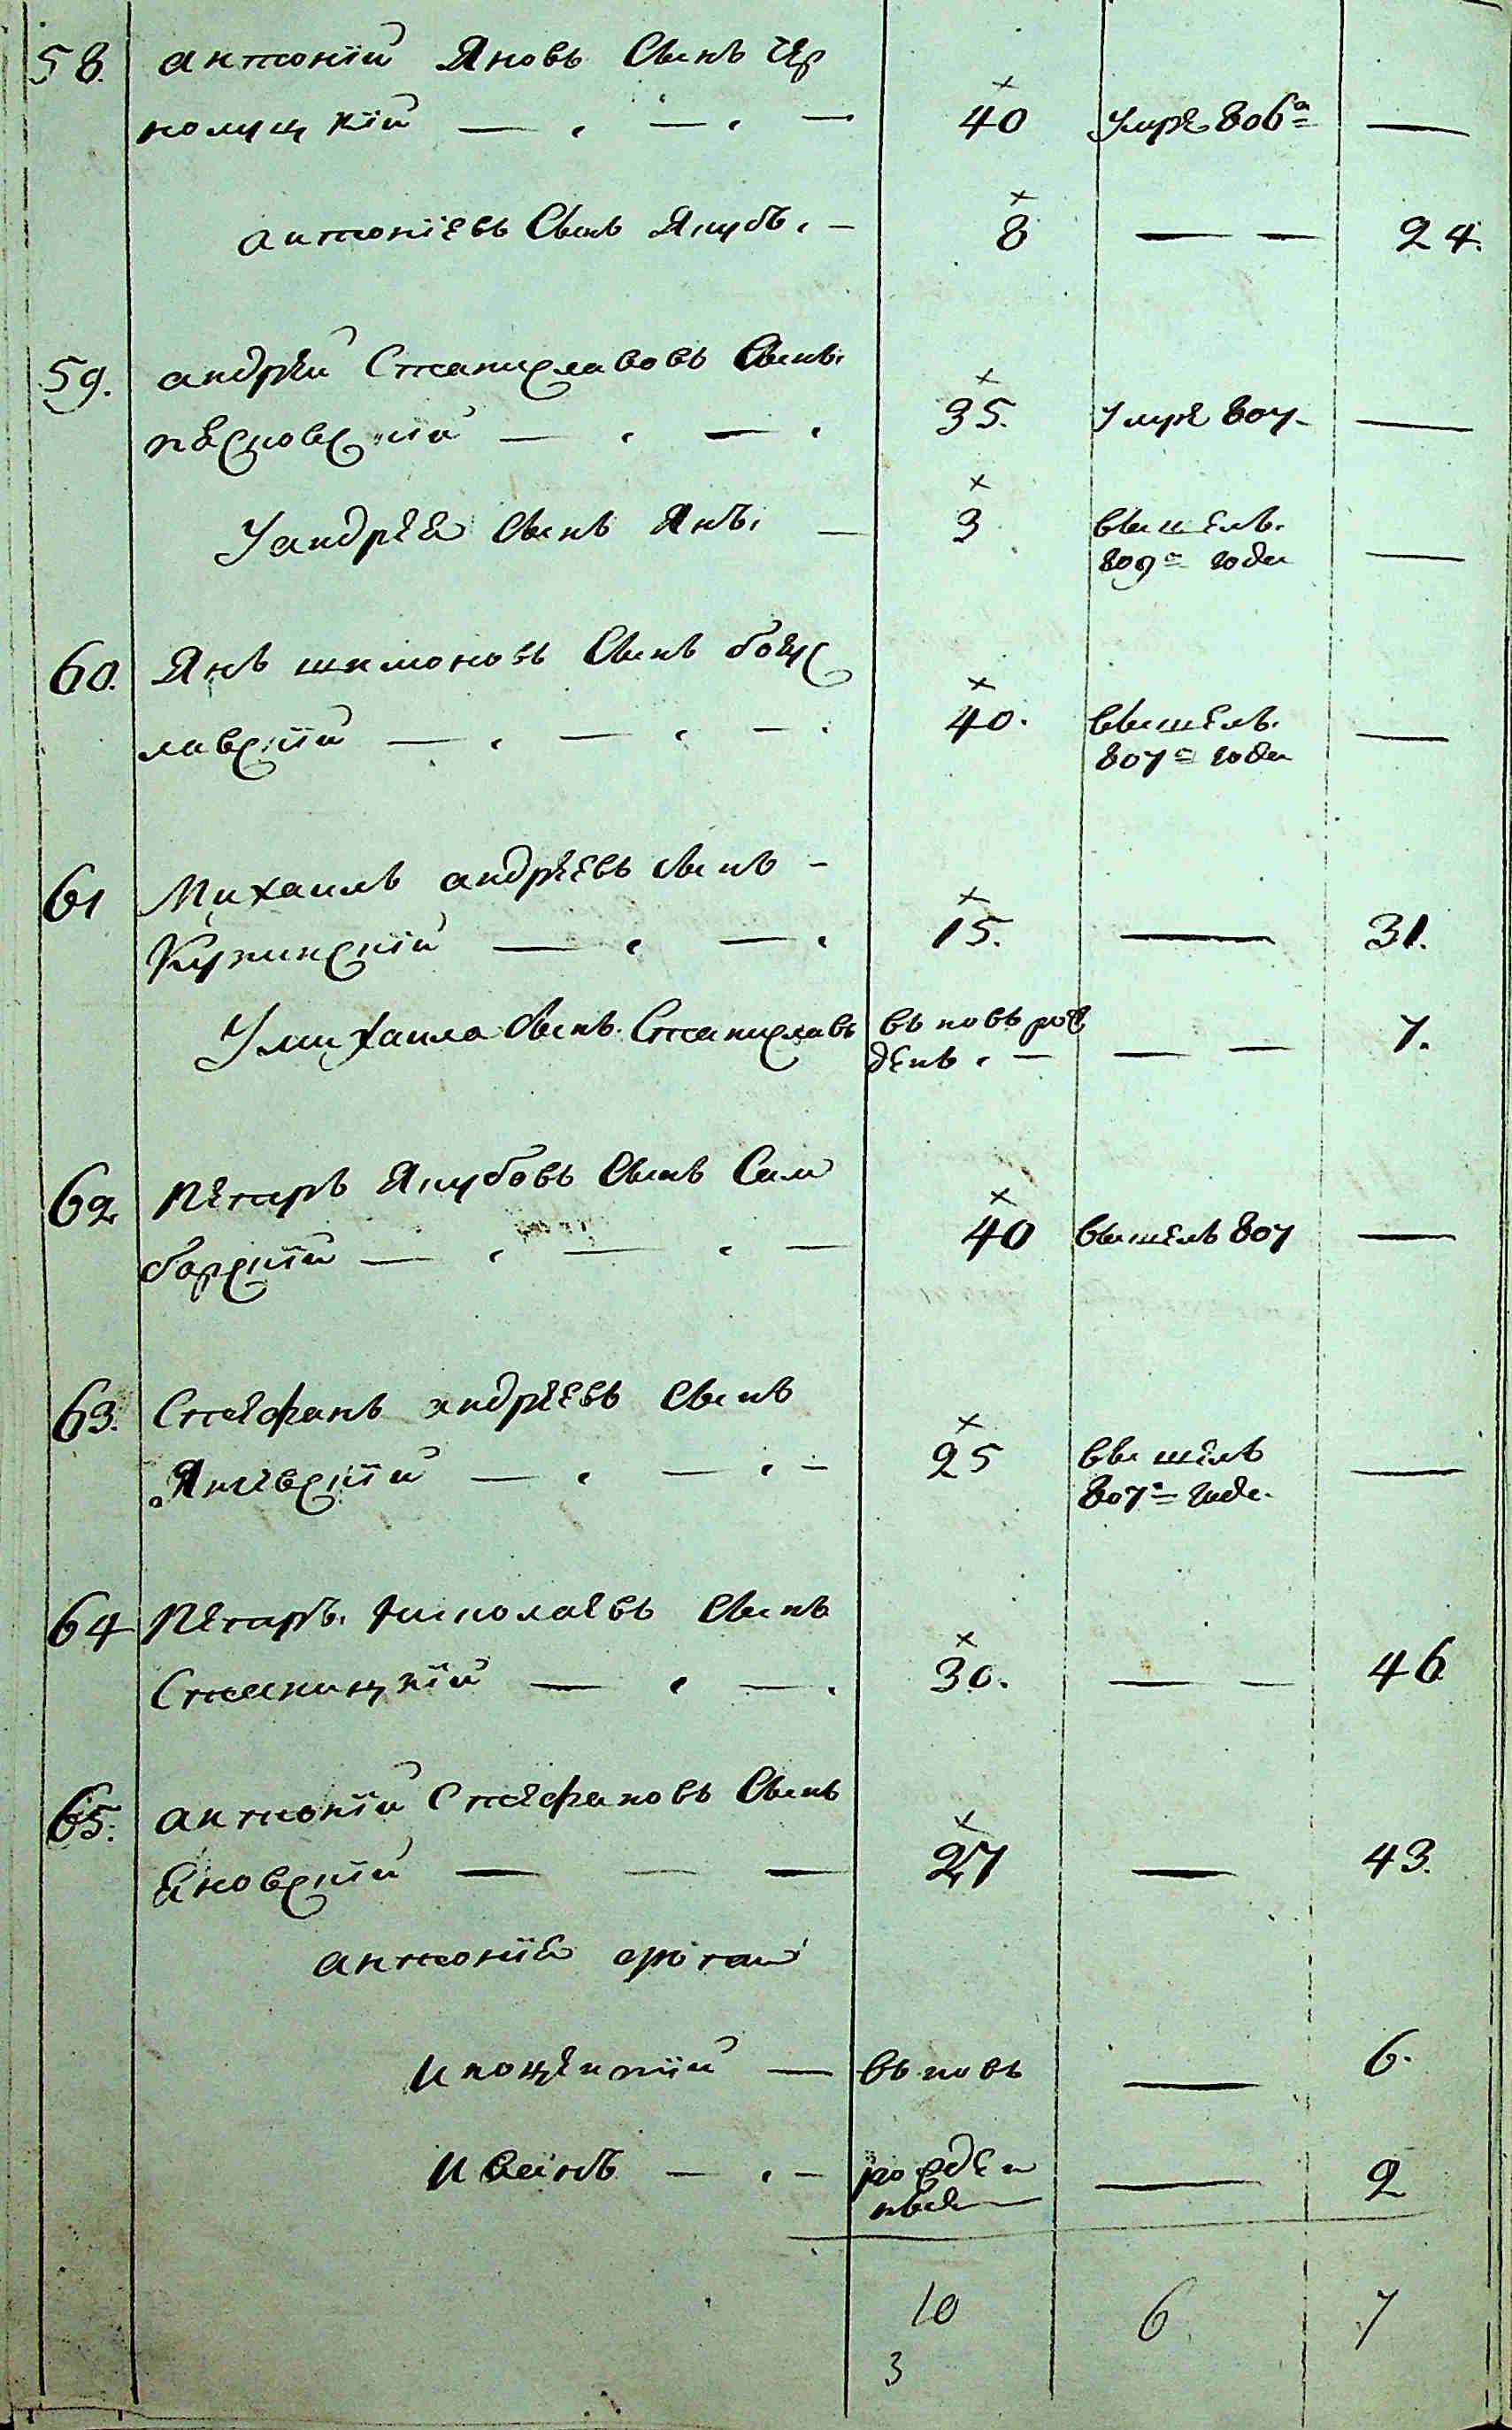 58. антоній Яновъ Сынъ Чер
нолуцкій — . — . — 40 умре 806а —
антоніевъ Сынъ Якубъ. — 8 — — 24.
59. андрей Станиславовъ Сынъ.
пѣсковскій — . — . 35. умре 807. —
У андрея Сынъ Янъ. — 3 вышелъ.
809 года —
60. Янъ шимоновъ Сынъ богус
лавскій — . — . — . 40. вышелъ.
807 года —
61 Михаилъ андреевъ сынъ —
— . — . 15. — 31.
У михаила сынъ. Станиславъ въновь рож
денъ . — — — 7.
62 Петръ Якубовъ Сынъ Сам
борскій — . — . — 40 вышелъ 807 —
63. Стефанъ андреевъ сынъ
— . — . — 25 вышелъ
807 года. —
64 Петръ. николаевъ сынъ
Станицкій — . — . 30. — — 46
65. антоній Стефановъ Сынъ
Яновскій — — — 27 — 43.
антонія
— въновь — 6.
Иванъ — . — рожден
ные — 2
10 6 7
3